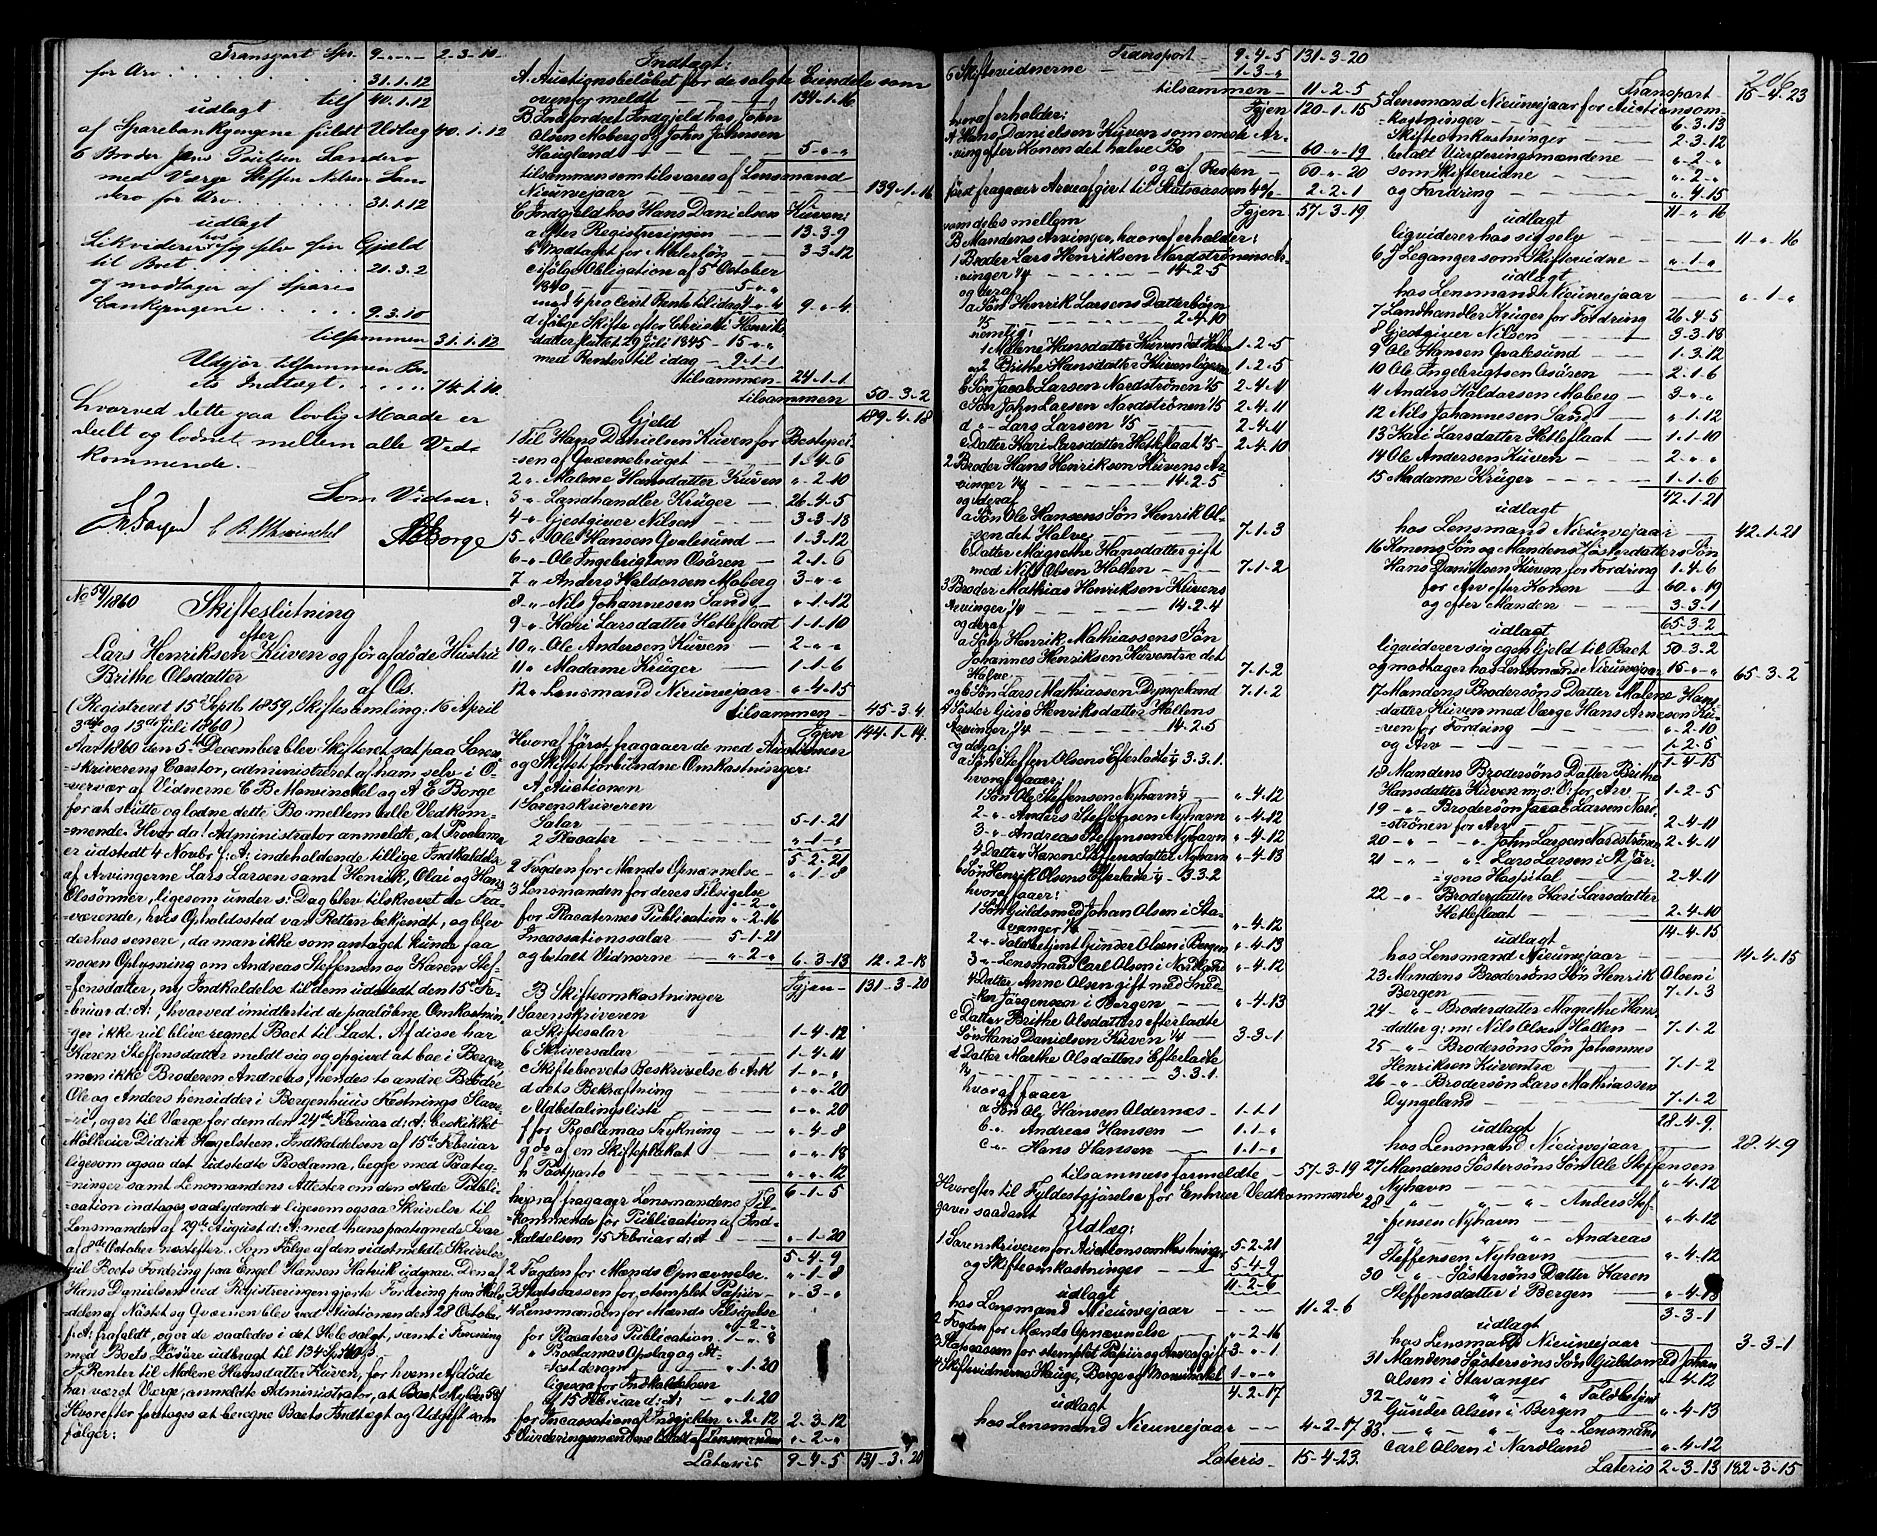 Transport Spr. 9 - " - " 2-3-10
for Arv . . . . . . 31-1-12
udlagt tilf 40-1-12
af Sparebankpengene fuldt Udlæg 40-1-12
6 Broder Jens Poulsen Sandero
med Værge Steffen Nilsen San-
dero for Arv . . . . 31-1-12
udlagt
Likviderer hos sig selv sin Gjeld
til Boet . . . . . 21-3-2
og modtager af Spare-
bankpengene . . . . 9-3-10
tilsammen 31-1-12
Udgjør tilsammen Bo-
ets Indtægt . . . . 74-1-10
hvorved dette paa lovlig Maade er
delt og lodnet mellem alle Ved-
kommende.
Som Vidner:
No 59/1860
Skifteslutning
efter
Lars Henriksen Kuven og før afdøde Hustru
Brithe Olsdatter
af Os.
(Registreret 15de Septb 1859, Skiftesamling: 16 April
3die og 13de Juli 1860)
Aar 1860 den 5te December blev Skifteret sat paa Soren-
skriverens Contor, administreret af ham selv i O-
vervær af Vidnerne C B Mowinckel og A E Borge
for at slutte og lodne dette Bo mellem alle Vedkom-
mende. Hvor da: Administrator anmeldte, at Proclama
er udstedt 4 Novbr f: A: indeholdende tillige Indkaldelse
af Arvingerne Lars Larsen samt Henrik, Olai og Hans
Olssønner, ligesom under s: Dag blev tilskrevet de Fra-
værende, hvis Opholdssted var Retten bekjendt, og blev
derhos senere, da man ikke som antaget kunde faa
nogen Oplysning om Andreas Steffensen og Karen Stef-
fensdatter, ny Indkaldelse til dem udstedt den 15de Fe-
bruar d: A:, hvorved imidlertid de paaløbne Omkostnin-
ger ikke vil blive regnet Boet til Last. Af disse har
Karen Steffensdatter meldt sig og opgivet at boe i Bergen,
men ikke Broderen Andreas, hendes to andre Brødre
Ole og Anders hensidder i Bergenhuus Fæstnings Slave-
ri, og er til Værge for dem den 24de Februar d: A: beskikket
Didrik Hagelsteen. Indkaldelsen af 15de Februar
ligesom ogsaa det udstedte Proclama, begge med Paateg-
ninger samt Lensmandens Attester om den skede Publi-
cation indtages saalydende # ligesom ogsaa Skrivelse til
Lensmanden af 29de August d: A: med hans paategnede Svar
af 8de October næstefter. Som Følge af den sidstmeldte Skrivelse
vil Boets Fordring paa Engel Hansen Hatvik udgaae. Den af
Hans Danielsen ved Registreringen gjorte Fordring paa Halv-
delen af Nøstet og Qværnen blev ved Auctionen den 28 October
f: A: frafaldt, og er de saaledes i det Hele solgt, samt i Forening
med Boets Løsøre udbragt til 134
I Renter til Malene Hansdatter Kuven, for hvem Afdøde
har været Værge, anmeldte Administrator, at Boet skylder
Hvorefter foretoges at beregne Boets Indtægt og Udgift som
følger:
Indtægt:
A. Auctionsbeløbet for de solgte Eiendele som
ovenfor meldt - - 134-1-16
B. Indfordret Indgjeld hos John
Olsen Moberg og John Johnsen
Haugland - - 5-"-"
tilsammen som tilsvares af Lensmand
Nieuwejaar - - 139-1-16
C. Indgjeld hos Hans Danielsen Kuven:
a efter Registreringen - 13-3-9
b modtaget for - 3-3-12
c ifølge Obligation af 5te October
1840 - - 5-"-"
med 4 pro Cent Rente til idag 4-"-4 9-"-4
d ifølge Skifte efter Christi Henriks-
datter sluttet 29 Juli 1845 - 15-"-"
med Renter til idag - 9-1-1
tilsammen - 24-1-1
tilsammen 50-3-2
189-4-18
Gjeld
1 Til Hans Danielsen Kuven for Bestyrel-
sen af Qværnebruget - - 1-4-6
2 " Malene Hansdatter Kuven "-2-10
3 " Landhandler Krüger - 26-4-5
4 " Gjestgiver Nilsen - 3-3-18
5 " Ole Hansen Qvalesund - 1-3-12
6 " Ole Ingebrigtsen Osøren - 2-1-6
7 " Anders Haldorsen Moberg 3-"-"
8 " Nils Johannesen Sand - "-1-12
9 " Kari Larsdatter Hetleflaat 1-1-10
10 " Ole Andersen Kuven - 2-"-"
11 " Madame Krüger - 1-1-6
12 " Lensmand Nieuwejaar - "-4-15
tilsammen - 45-3-4
Igjen - 144-1-14
Hvoraf først fragaaer de med Auctionen
og Skiftet forbundne Omkostninger:
A. Auctionen
1 Sorenskriveren
Salær 5-1-21
2 Placater "-1-"
5-2-21
2 Fogden for Mænds Opnævnelse - "-1-8
3 Lensmanden for deres Tilsigelse
"-2-"
for Placaternes Publication "-2-16
Incassationssalær - 5-1-21
og betalt Vidnerne - "-2-" 6-3-13 12-2-18
Igjen - 131-3-20
B Skifteomkostninger
1 Sorenskriveren
a Skiftesalær 1-4-12
b Skriversalær 1-4-11
c Skiftebrevets Beskrivelse 6 Ark 1-"-"
d dets Bekræftning "-"-20
e Udbetalingsliste "-"-20
f for Proclamas Trykning - "-4-8
g do af en Skifteplakat - "-"-18
h Postporto - "-"-12
6-1-5
hvoraf fragaaer Lensmandens Til-
kommende for Publication af Ind-
kaldelsen 15 Februar d: A: - "-1-20
5-4-9
2 Fogden for Mænds Opnævnelse. "-1-8
3 Statscassen for stemplet Papiir - "-3-"
4 Lensmanden for Mænds Tilsigelse
"-2-"
for Placaters Publication 1-"-8
" Proclamas Opslag og At-
test derom - "-1-20
ligesaa for Indkaldelsen
af 15 Februar d: A: "-1-20
for Incassation af Indgjelden "-2-12 2-3-12
5 Vurderingsmændene betalt af Lensmanden "-2-"
Lateris 9-4-5 131-3-20
Transport - 9-4-5 131-3-20
6 Skiftevidnerne - - 1-3-"
tilsammen - 11-2-5
Igjen 120-1-15
hvoraf erholder:
A Hans Danielsen Kuven som eneste Ar-
ving efter Konen det halve Bo - 60-"-19
og af Resten - 60-"-20
først fragaaer Arveafgivt til Statscassen 4% 2-2-1
Igjen - 57-3-19
som deles mellem
B Mandens Arvinger, hvoraf erholder:
1 Broder Lars Henriksen Nordstrønens Ar-
vinger 1/4 - - 14-2-5
og deraf
a Søn Henrik Larsens Datterbørn
1/5 - - 2-4-10
nemlig:
1 Malene Hansdatter Kuven det Halve 1-2-5
og 2 Brithe Hansdatter Kuven ligesaa 1-2-5
b Søn Jacob Larsen Nordstrønen 1/5 2-4-11
c Søn John Larsen Nordstrønen 1/5 2-4-11
d " - Lars Larsen 1/5 - 2-4-11
e Datter Kari Larsdatter Hetleflaat 1/5 - 2-4-10
2 Broder Hans Henriksen Kuvens Ar-
vinger 1/4 - 14-2-5
og deraf
a Søn Ole Hansens Søn Henrik Ol-
sen det Halve - 7-1-3
b Datter Magrethe Hansdatter gift
med Nils Olsen Hallen - 7-1-2
3 Broder Mathias Henriksen Kuvens
Arvinger 1/4 - 14-2-4
og deraf
a Søn Henrik Mathiassens Søn
Johannes Henriksen Kuventræ det
Halve - 7-1-2
og b Søn Lars Mathiassen Dyngeland 7-1-2
4 Søster Guro Henriksdatter Hallens
Arvinger 1/4 - 14-2-5
og deraf:
a Søn Steffen Olsens Efterladte 1/4 3-3-1
hvoraf faaer:
1 Søn Ole Steffensen Nyhavn 1/4 - "-4-12
2 " Anders Steffensen Nyhavn "-4-12
3 " Andreas Steffensen Nyhavn "-4-12
4 Datter Karen Steffensdatter Nyhavn "-4-13
b Søn Henrik Olsens Efterladte 1/4 - 3-3-2
hvoraf faaer:
1 Søn Guldsmed Johan Olsen i Sta-
vanger 1/4 - "-4-12
2 " Toldbetjent Gunder Olsen i Bergen "-4-13
3 " Lensmand Carl Olsen i Nordland "-4-12
4 Datter Anne Olsen gift med Sned-
ker Jørgensen i Bergen - "-4-13
c Datter Brithe Olsdatters efterladte
Søn Hans Danielsen Kuven 1/4 - 3-3-1
d Datter Marthe Olsdatters Efterladte
1/4 - - 3-3-1
hvoraf faaer
a Søn Ole Hansen Aldernes - 1-1-1
b " Andreas Hansen - 1-1-"
c " Hans Hansen - 1-1-"
tilsammen formeldte - 57-3-19
Hvorefter til Fyldestgjørelse for Enhver Vedkommende
gøres saadant
Udlæg:
1 Sorenskriveren for Auctionsomkostninger 5-2-21
og Skifteomkostninger - 5-4-9
11-2-6
udlagt
hos Lensmand Nieuwejaar - 11-2-6
2 Fogden for Mænds Opnævnelse - "-2-16
3 Statscassen for stemplet Papiir og Arveafgift 3-"-1
4 Skiftevidnerne Hauge, Borge og Mowinckel 1-"-"
4-2-17
udlagt
hos Lensmand Nieuwejaar - 4-2-17
Lateris - 15-4-23
206
Transport - 15-4-23
5 Lensmand Nieuwejaar for Auctionsom-
kostninger - 6-3-13
Skifteomkostninger - 2-3-12
betalt Vurderingsmændene - "-2-"
som Skiftevidne - "-2-"
og Fordring - "-4-15
11-"-16
udlagt
liqviderer hos sig selv - 11-"-16
6 J Leganger som Skiftevidne - "-1-"
udlagt
hos Lensmand Nieuwejaar - "-1-"
7 Landhandler Krüger for Fordring 26-4-5
8 Gjestgiver Nilsen - 3-3-18
9 Ole Hansen Qvalesund - 1-3-12
10 Ole Ingebrigtsen Osøren - 2-1-6
11 Anders Haldorsen Moberg - 3-"-"
12 Nils Johannesen Sand - "-1-12
13 Kari Larsdatter Hetleflaat - 1-1-10
14 Ole Andersen Kuven - 2-"-"
15 Madame Krüger - 1-1-6
42-1-21
udlagt
hos Lensmand Nieuwejaar - 42-1-21
16 Konens Søn og Mandens Søsterdatters Søn
Hans Danielsen Kuven for Fordring 1-4-6
for Arv efter Konen - 60-"-19
og efter Manden - 3-3-1
65-3-2
udlagt
liqviderer sin egen Gjeld til Boet 50-3-2
og modtager hos Lensmand Nieuwejaar 15-"-" 65-3-2
17 Mandens Brodersøns Datter Malene Hans-
datter Kuven med Værge Hans Arnesen Ku-
ven for Fordring - "-2-10
og Arv - 1-2-5
1-4-15
18 Mandens Brodersøns Datter Brithe
Hansdatter Kuven m: s: V: for Arv 1-2-5
19 - " - Brodersøn Jacob Larsen Nord-
strønen for Arv - 2-4-11
20 - " - " John Larsen Nordstrønen 2-4-11
21 - " - " Lars Larsen i St Jør-
gens Hospital - 2-4-11
22 - " - Brodersdatter Kari Larsdatter
Hetleflaat - 2-4-10
14-4-15
udlagt
hos Lensmand Nieuwejaar - 14-4-15
23 Mandens Brodersøns Søn Henrik Olsen i
Bergen - 7-1-3
24 - " - Brodersdatter Magrethe Hans-
datter g: m: Nils Olsen Hallen - 7-1-2
25 - " - Brodersøns Søn Johannes
Henriksen Kuventræ - 7-1-2
26 - " - Brodersøn Lars Mathiassen
Dyngeland - 7-1-2
28-4-9
udlagt
hos Lensmand Nieuwejaar - 28-4-9
27 Mandens Søstersøns Søn Ole Steffensen
Nyhavn - "-4-12
28 " " " Anders Stef-
fensen Nyhavn - "-4-12
29 " " " Andreas
Steffensen Nyhavn - "-4-12
30 " - Søstersøns Datter Karen
Steffensdatter i Bergen - "-4-13
3-3-1
udlagt
hos Lensmand Nieuwejaar - 3-3-1
31 Mandens Søstersøns Søn Guldsmed Johan
Olsen i Stavanger - "-4-12
32 - " " " Toldbetjent
Gunder Olsen i Bergen - "-4-13
33 - " " " Lensmand
Carl Olsen i Nordland - "-4-12
Lateris 2-3-13 182-3-15